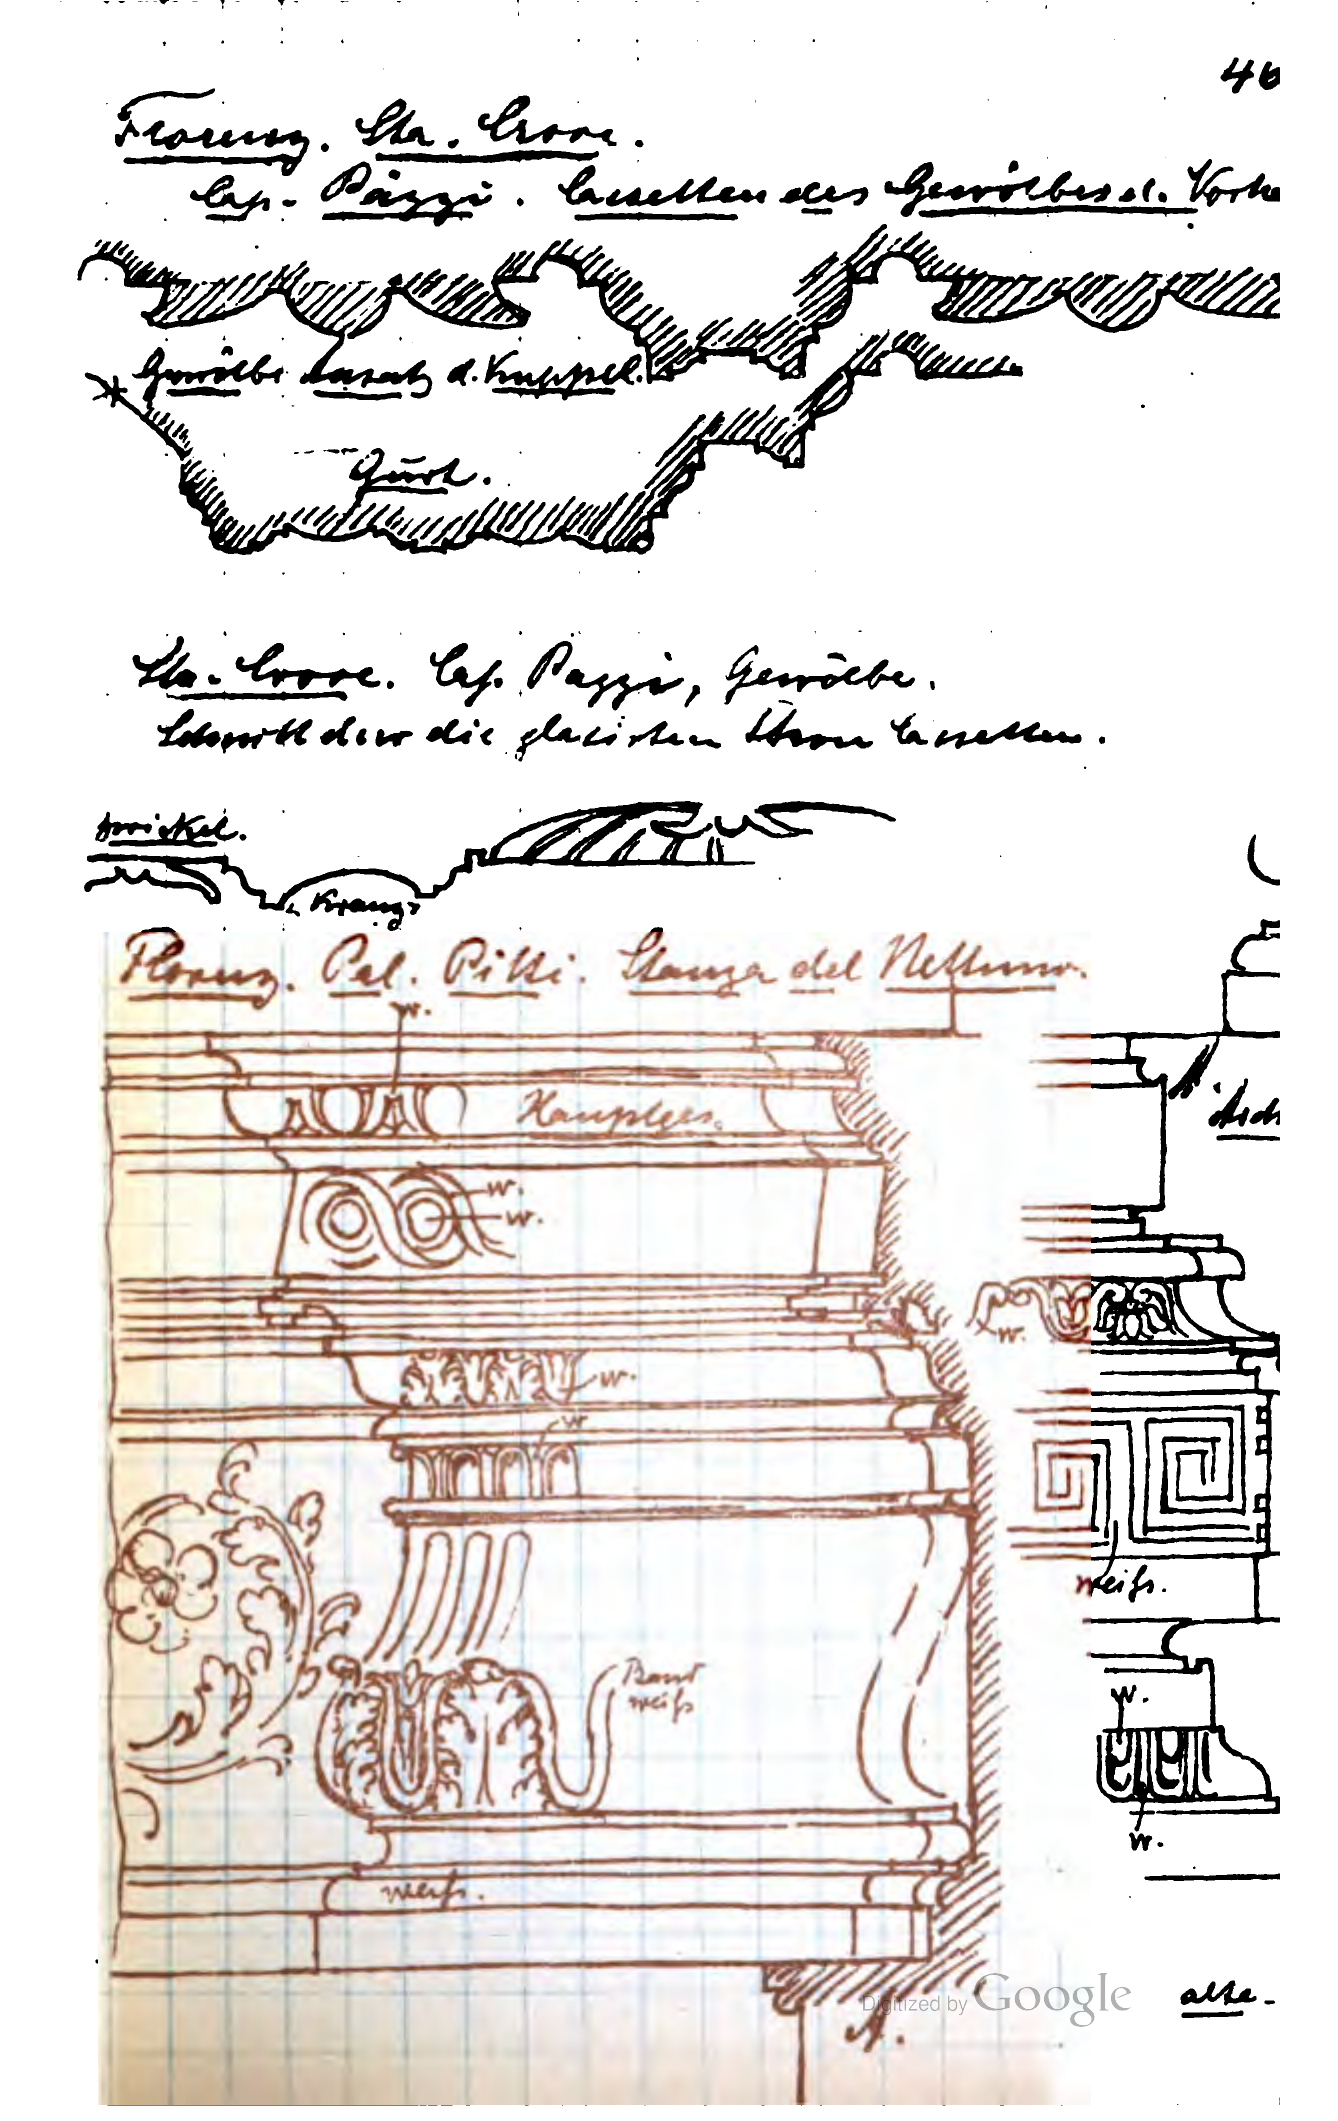 46
Florenz. Sta. Croce.
Cap. Pazzi. Cassetten des Gewölbes d. Vorha
Gewölbe ansatz d. Kuppel.
Gurt.
Sta. Croce. Cap. Pazzi, Gewölbe.
Schnitt durch die glasirten Thon Cassetten.
Zwickel.
Kranz
Florenz. Pal. Pitti. Stanza del Nettuno.
w.
Hauptges.
w.
w.
w.
w.
w
weiss.
Band
weiss
w.
w.
weiss.
Digitized by Google
alte-
A.